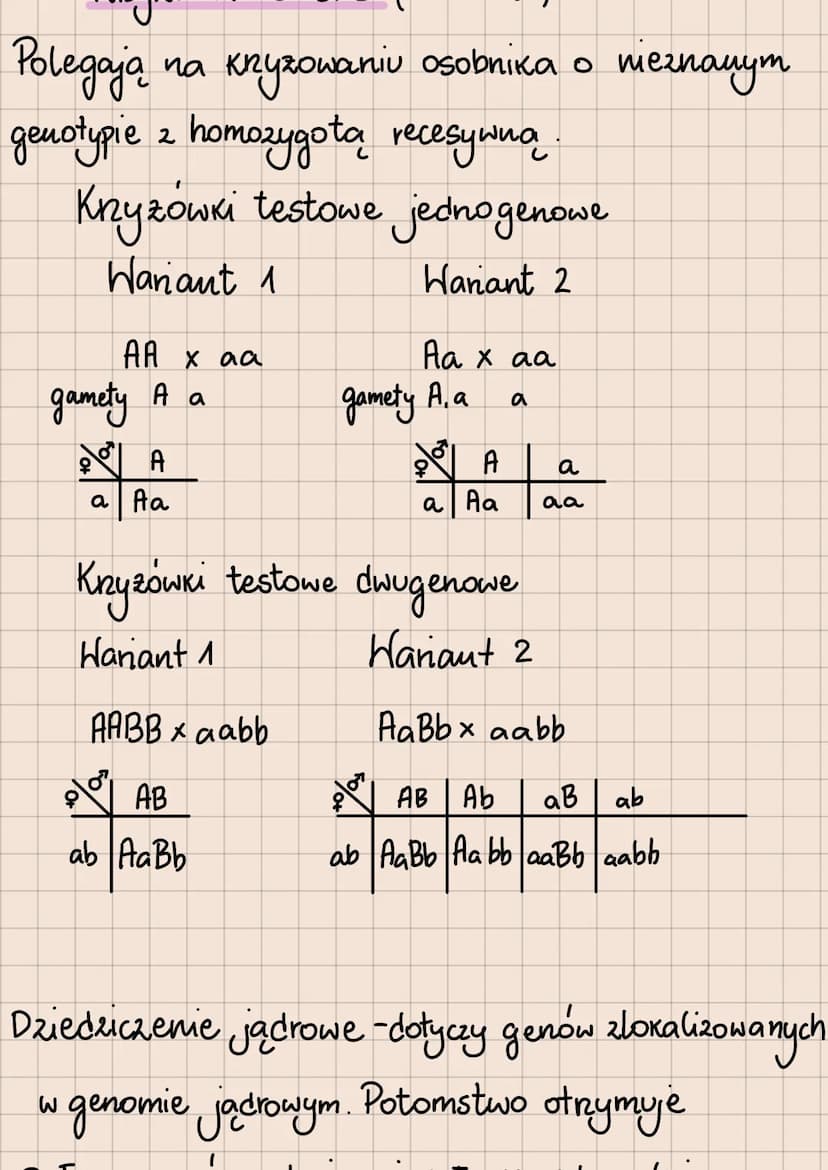 Polegają na krzyżowaniu osobnika o nieznanym
genotypie z homozygotą recesywną.
Krzyżówki testowe jednogenowe
Wariant 1 Wariant 2
AA x aa Aa x aa
gamety A a gamety A,a a
♀ ♂ A ♀ ♂ A a
a Aa a Aa aa
Krzyżówki testowe dwugenowe
Wariant 1 Wariant 2
AABB x aabb AaBb x aabb
♀ ♂ AB ♀ ♂ AB Ab aB ab
ab AaBb ab AaBb Aabb aaBb aabb
Dziedziczenie jądrowe - dotyczy genów zlokalizowanych
w genomie jądrowym. Potomstwo otrzymuje